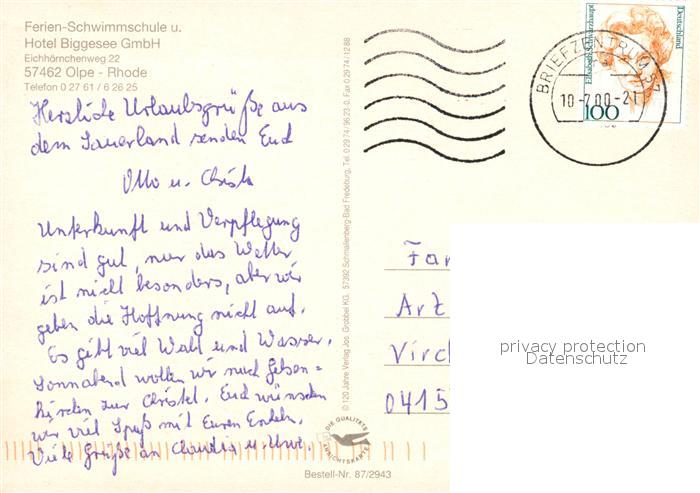 Ferien-Schwimmschule u.
Hotel Biggesee GmbH
Eichhörnchenweg 22
57462 Olpe - Rhode
Telefon 0 27 61 / 6 26 25
Herzliche Urlaubsgrüße aus
dem Sauerland senden Euch
Otto u. Christa
Unterkunft und Verpflegung
sind gut, nur das Wetter
ist nicht besonders, aber wir
geben die Hoffnung nicht auf.
Es gibt viel Wald und Wasser.
Sonnabend wollen wir nach Gelsen=
kirchen zur Christel. Euch wünschen
wir viel Spaß mit Euren Enkeln.
Viele Grüße an Claudia u. Uwe.
© 120 Jahre Verlag Jos. Grobbel KG, 57392 Schmallenberg-Bad Fredeburg, Tel. 0 29 74 / 96 23-0, Fax 0 29 74 / 12 88
DIE QUALITÄTS
ANSICHTSKARTE
Bestell-Nr. 87/2943
Deutschland
Elisabeth Schwarzhaupt
100
BRIEFZENTRUM 57
10-7.00-21
Fam
Arz
Virch
0415
privacy protection
Datenschutz